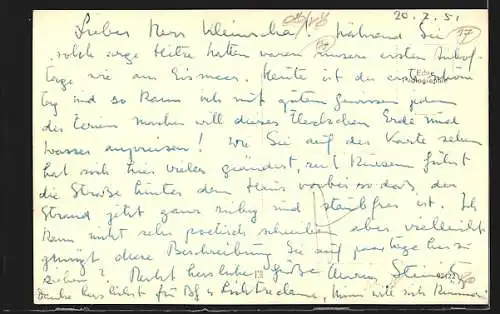 20.7.51
Lieber Herr während Sie
solche arge Hitze hatten waren unsere ersten
tage wie am Eismeer. Heute ist der
tag und so kann ich mit gutem Gewissen jedem
der Ferien machen will dieses Fleckchen Erde und
Wasser anpreisen! Wie Sie auf der Karte sehen
hat sich hier vieles geändert, seit führt
die Straße hinter dem Haus vorbei so daß der
Strand jetzt ganz ruhig und staubfrei ist. Ich
kann nicht sehr poetisch schreiben aber vielleicht
genügt diese Beschreibung Sie auf paar tage herzu
ziehen? Recht herzliche Grüße
Danke herzlichst für Bf u. Lichtreclame, will sich